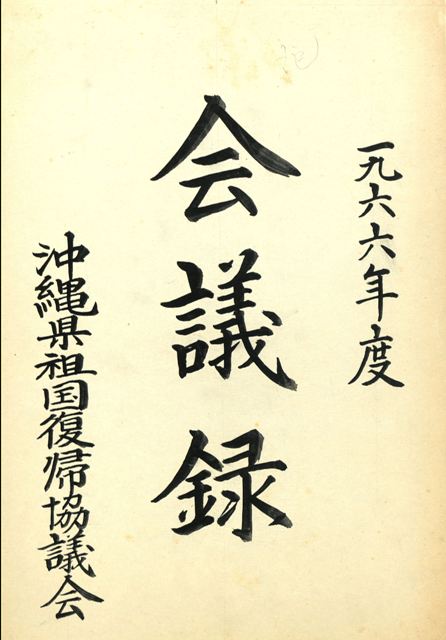 一九六六年度
会議録
沖縄県祖国復帰協議会